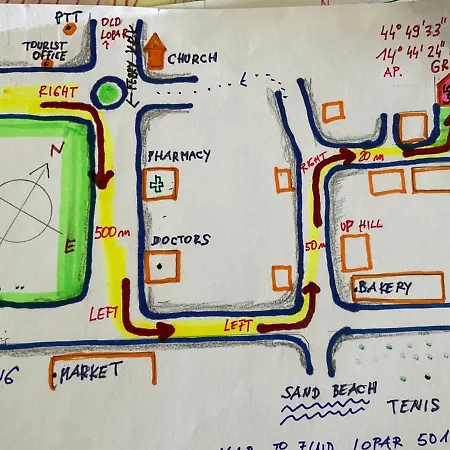 PTT
OLD
LOPAR
TOURIST
OFFICE
CHURCH
44° 49'33"
14° 44' 24"
AP.
GR
RIGHT
N
E
PHARMACY
RIGHT
20 m
500 m
DOCTORS
50m
UP HILL
BAKERY
LEFT
LEFT
MARKET
SAND BEACH
TENIS
TO FIND LOPAR 501